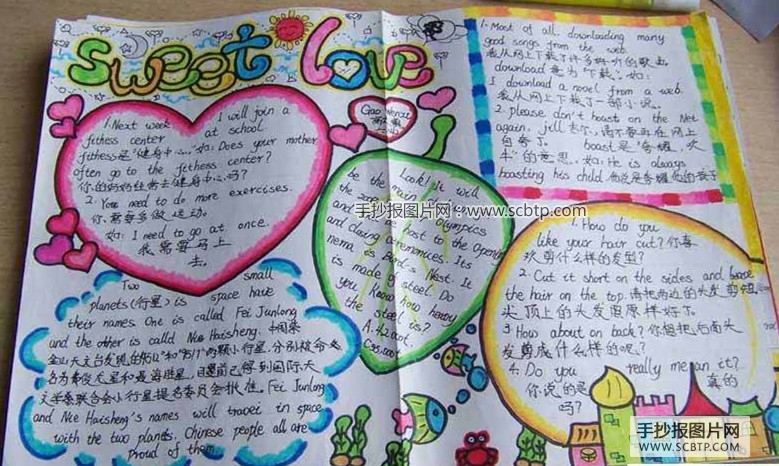 sweet love
1. Next week I will join a
fitness center at school.
fitness是"健身中心". 如: Does your mother
often go to the fitness center?
你的妈妈经常去健身中心吗?
2. You need to do more exercises.
你需要多做运动.
如: I need to go at once.
我需要马上
去.
Gao Wenxu
Look! It will
be the main Olympics
and be host to the Opening
and closing ceremonies. Its
nema is Bird's Nest. It
is made of steel. Do
you know how heavy
the steel is?
A. 42000t.
1. Most of all. downloading many
good songs from the web.
我从网上下载了许多好听的歌曲
download 意为"下载". 如:
I download a novel from a web.
我从网上下载了一部小说.
2. please don't boast on the Net
again, jill 吉尔, 请不要再在网上
自夸了. boast是"夸耀, 吹
牛"的意思. 如: He is always
boasting his child. 他总是夸耀他的孩子
1. How do you
like your hair cut? 你喜
欢剪什么样的发型?
2. Cut it short on the sides and leave
the hair on the top. 请把两边的头发剪短些
头顶上的头发照原样好了.
3 How about on back? 你想把后面头
发剪成什么样的呢?
4. Do you really mean it?
你说的是 真的
吗?
Two small
planets (行星) is space have
their names. One is called Fei Junlong
and the other is called Nie Haisheng. 中国紫
金山天文台发现的 和"9517"两颗小行星, 分别被命
名为费俊龙星和聂海胜星, 日前已得到国际天
文学家联合会小行星提名委员会批准. Fei Junlong
and Nie Haisheng's names will travel in space
with the two planets. Chinese people all are
proud of them.
手抄报图片网:www.scbtp.com
手抄报图片网
WWW.SCBTP.COM